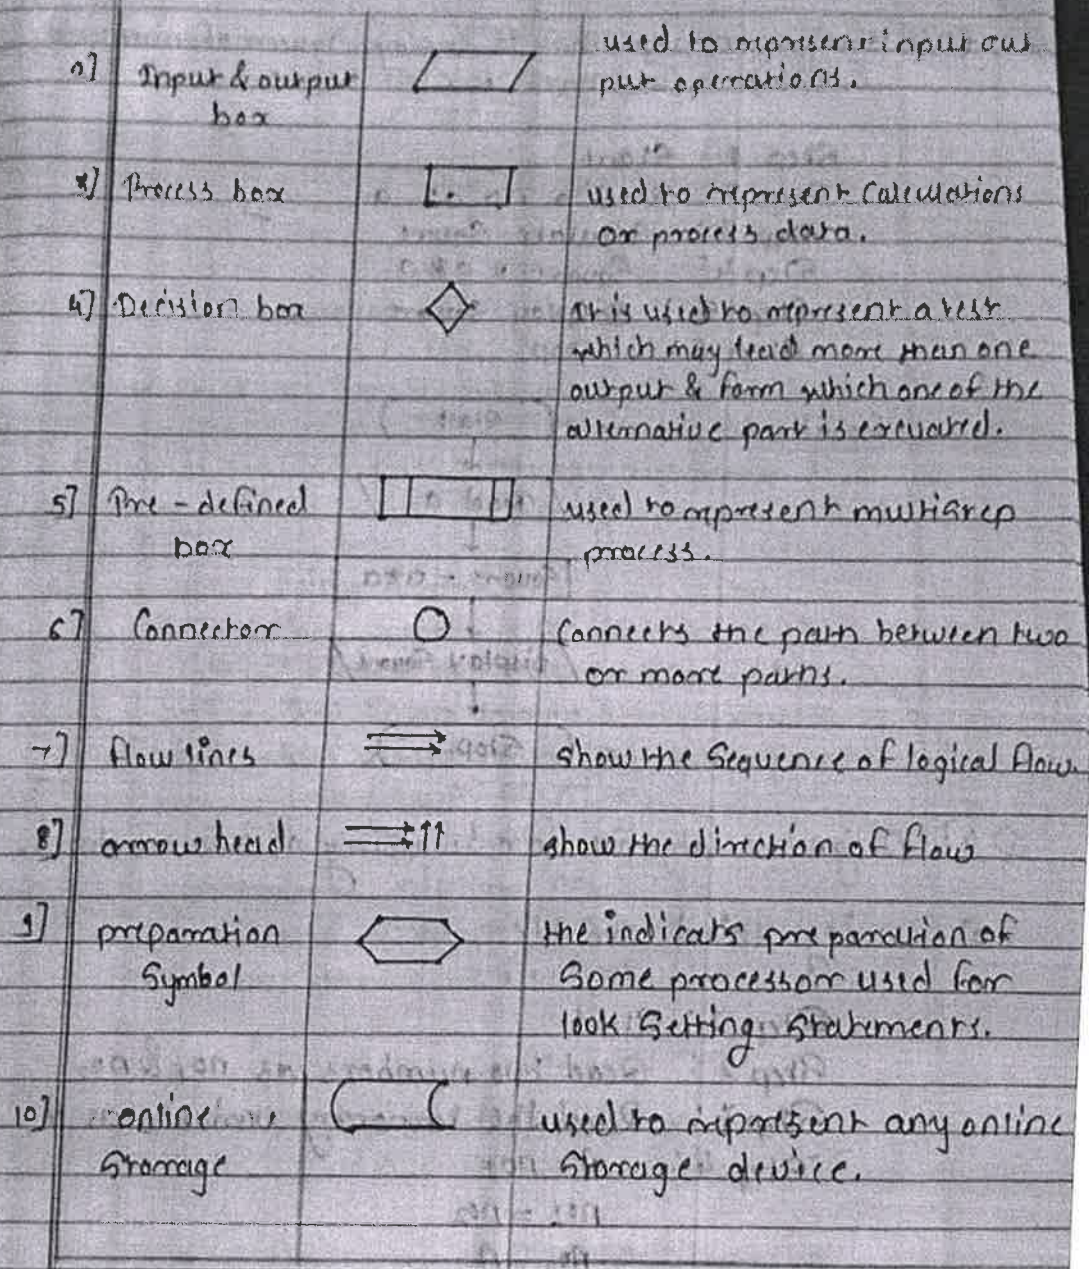 2] Input & output box used to represent input out
put operations.
3] Process box used to represent Calculations
or process data.
4] Decision box It is used to represent a test
which may lead more than one
output & form which one of the
alternative part is excuated.
5] Pre-defined box used to represent multistep
process.
6] Connector Connects the path between two
or more paths.
7] flow lines show the Sequence of logical flow
8] arrow head show the direction of flow
9] preparation Symbol the indicats preparation of
Some processor used for
look Setting Statements.
10] online Storage used to represent any online
Storage device.